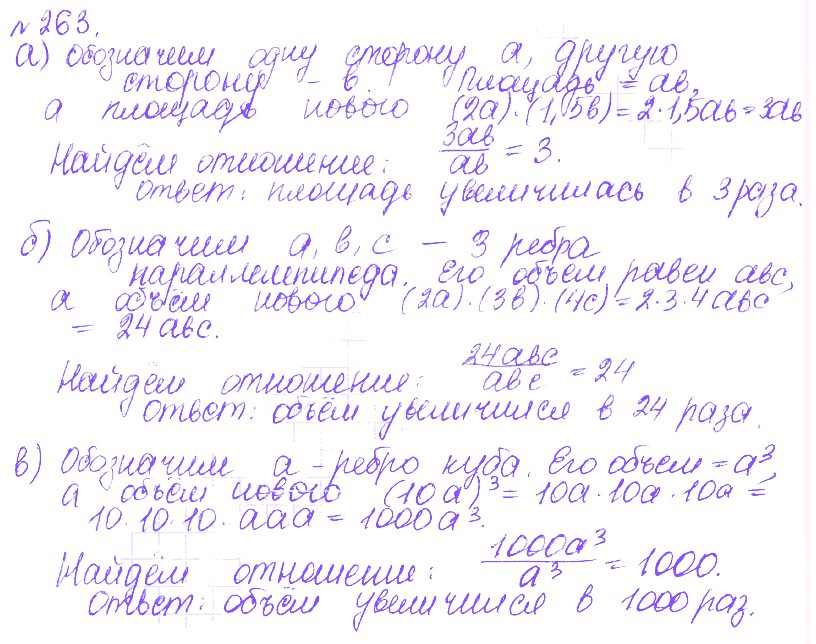 №263.
а) Обозначим одну сторону а, другую
сторону – в. Площадь = ав,
а площадь нового (2а)·(1,5в)=2·1,5ав=3ав
Найдём отношение: 3ав/ав = 3.
Ответ: площадь увеличилась в 3 раза.
б) Обозначим а, в, с – 3 ребра
параллелепипеда. Его объём равен авс,
а объём нового (2а)·(3в)·(4с)=2·3·4авс
= 24авс.
Найдём отношение: 24авс/авс = 24
Ответ: объём увеличился в 24 раза.
в) Обозначим а – ребро куба. Его объем = а³,
а объём нового (10а)³ = 10а·10а·10а =
10·10·10·ааа = 1000а³.
Найдём отношение: 1000а³/а³ = 1000.
Ответ: объём увеличился в 1000 раз.